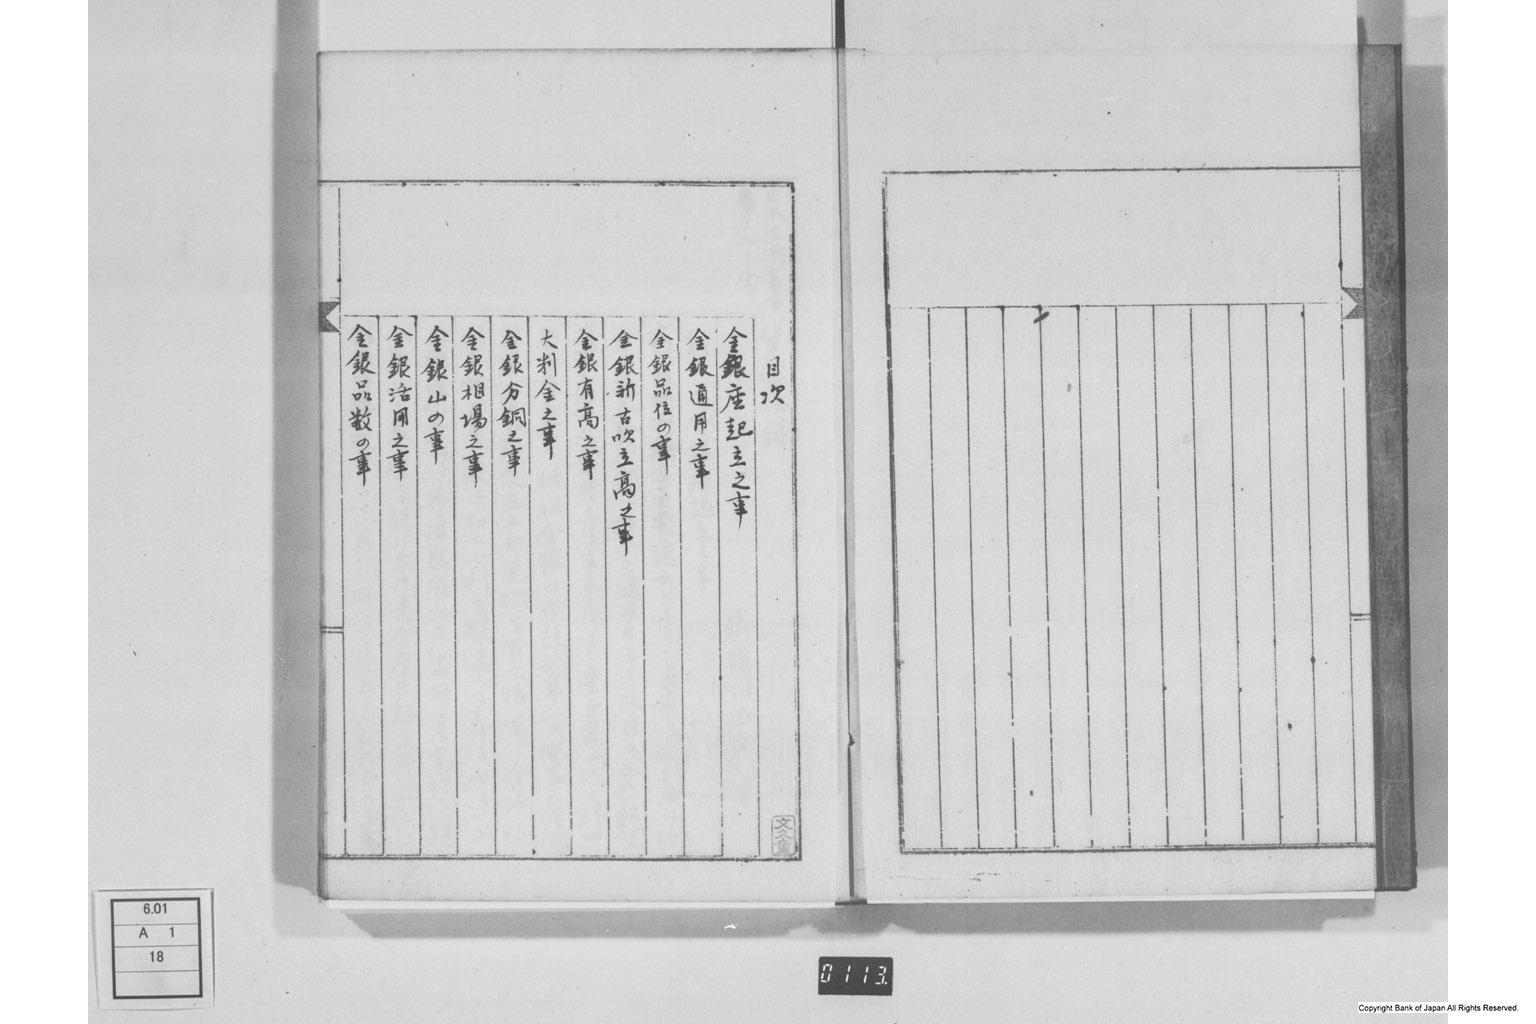 目次
金銀座起立之事
金銀通用之事
金銀品位の事
金銀新古吹立高之事
金銀有高之事
大判金之事
金銀分銅之事
金銀相場之事
金銀山の事
金銀活用之事
金銀品数の事
6.01
A 1
18
0113
Copyright Bank of Japan All Rights Reserved.